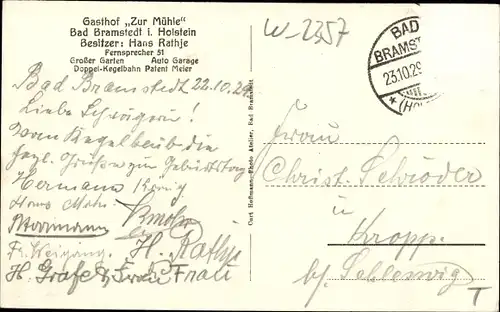 Gasthof „Zur Mühle"
Bad Bramstedt i. Holstein
Besitzer: Hans Rathje
Fernsprecher 51
Großer Garten Auto Garage
Doppel-Kegelbahn Patent Meier
W-2357
BAD
BRAMST
23.10.29
* (HOL
Bad Bramstedt 22.10.29
Liebe Schwägerin!
Vom Kegelklub die
herzl. Grüßen zum Geburtstag
Hermann König
Hans Mohr
H. Rathje
Fr. Weigang
Frau
H. Grafe & Frau
Curt Hoffmann-Photo Atelier, Bad Bramstedt
Frau
Christ. Schröder
u
Kropp.
b/ Schleswig
T